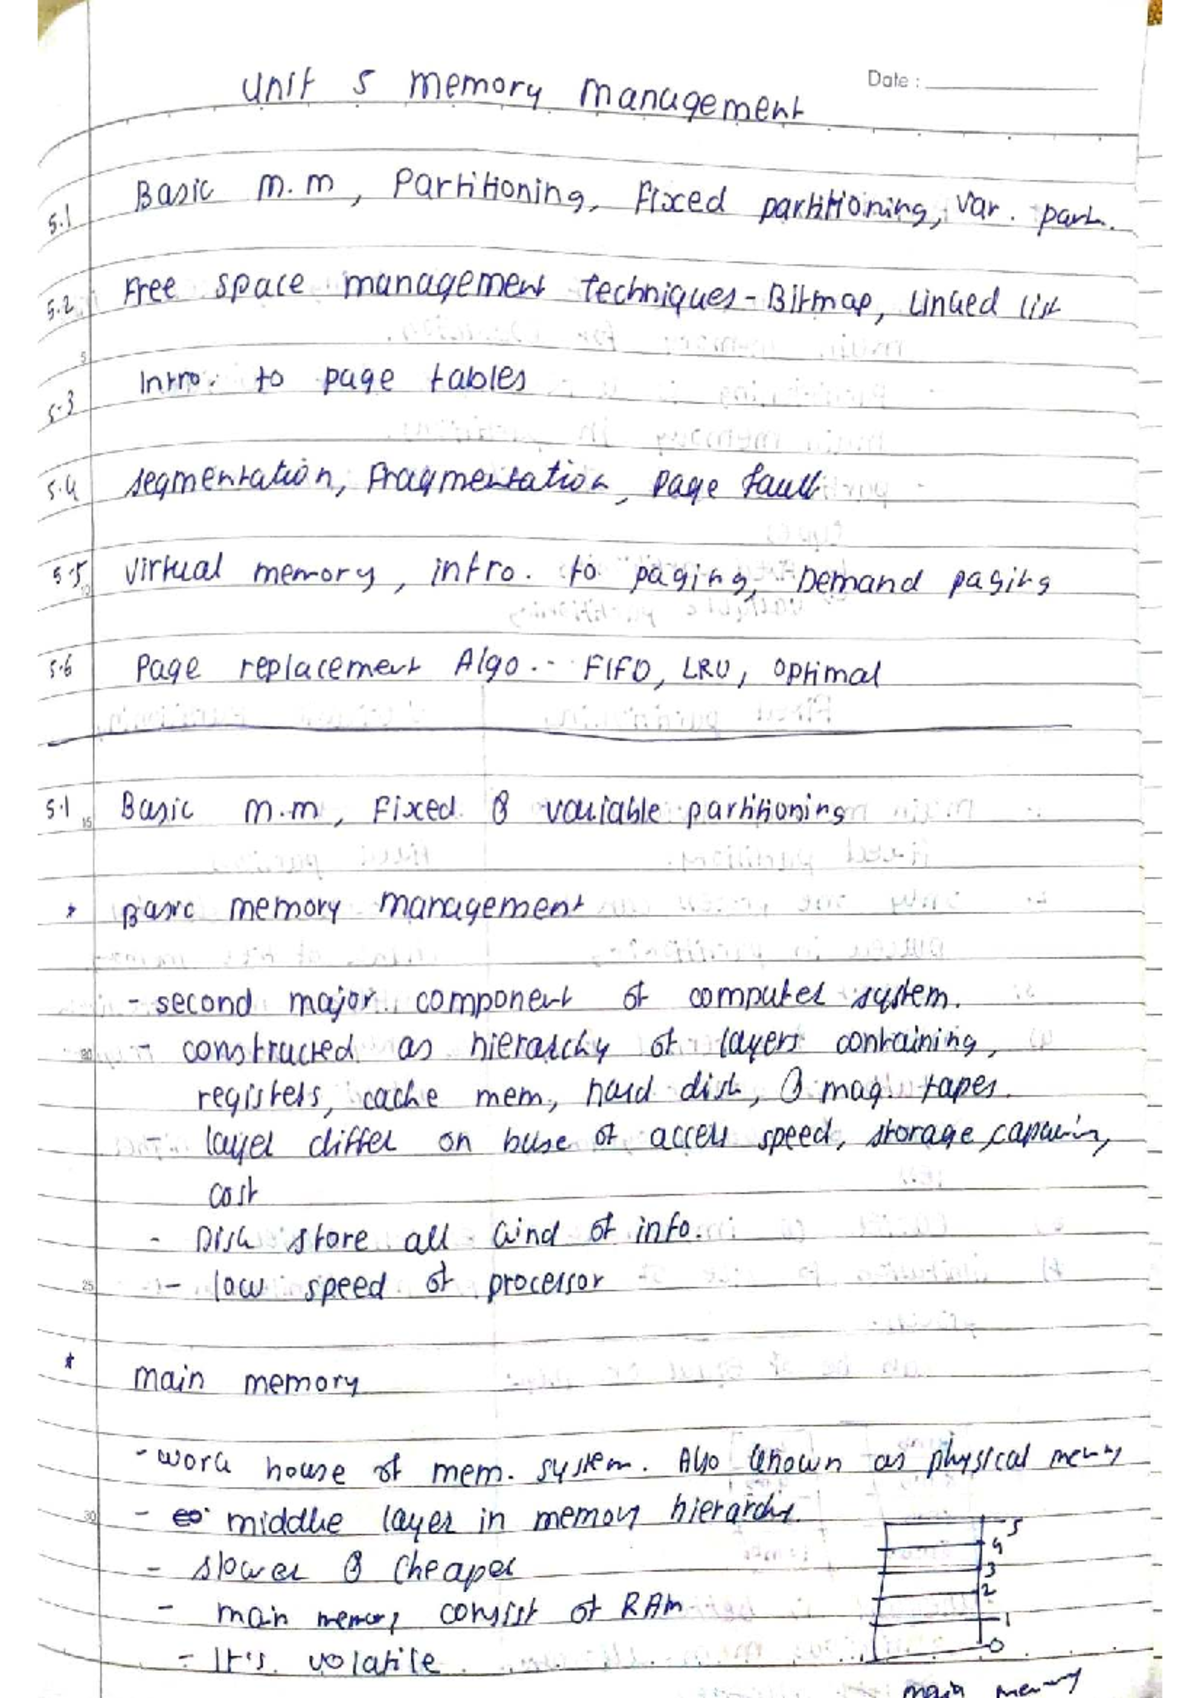 Date :
Unit 5 memory management
5.1 Basic m.m, Partitioning, Fixed partitioning, var. part.
5.2 Free space management techniques - Bitmap, Linked list
5
5.3 Intro. to page tables
5.4 segmentation, Fragmentation, page fault
5.5 virtual memory, intro. to paging, Demand paging
10
5.6 Page replacement Algo. - FIFO, LRU, optimal
5.1 Basic m.m, Fixed & variable partitioning
15
* Basic memory management
- second major component of computer system.
20 - constructed as hierarchy of layers containing,
registers, cache mem, hard disk, & mag. tapes.
- layer differ on base of access speed, storage capacity,
cost
- Disk store all kind of info.
25 - low speed of processor
* main memory
- work house of mem. system. Also known as physical memory
30 - middle layer in memory hierarchy.
- slower & cheaper
- main memory consist of RAM
- It's volatile
5
4
3
2
1
0
main memory